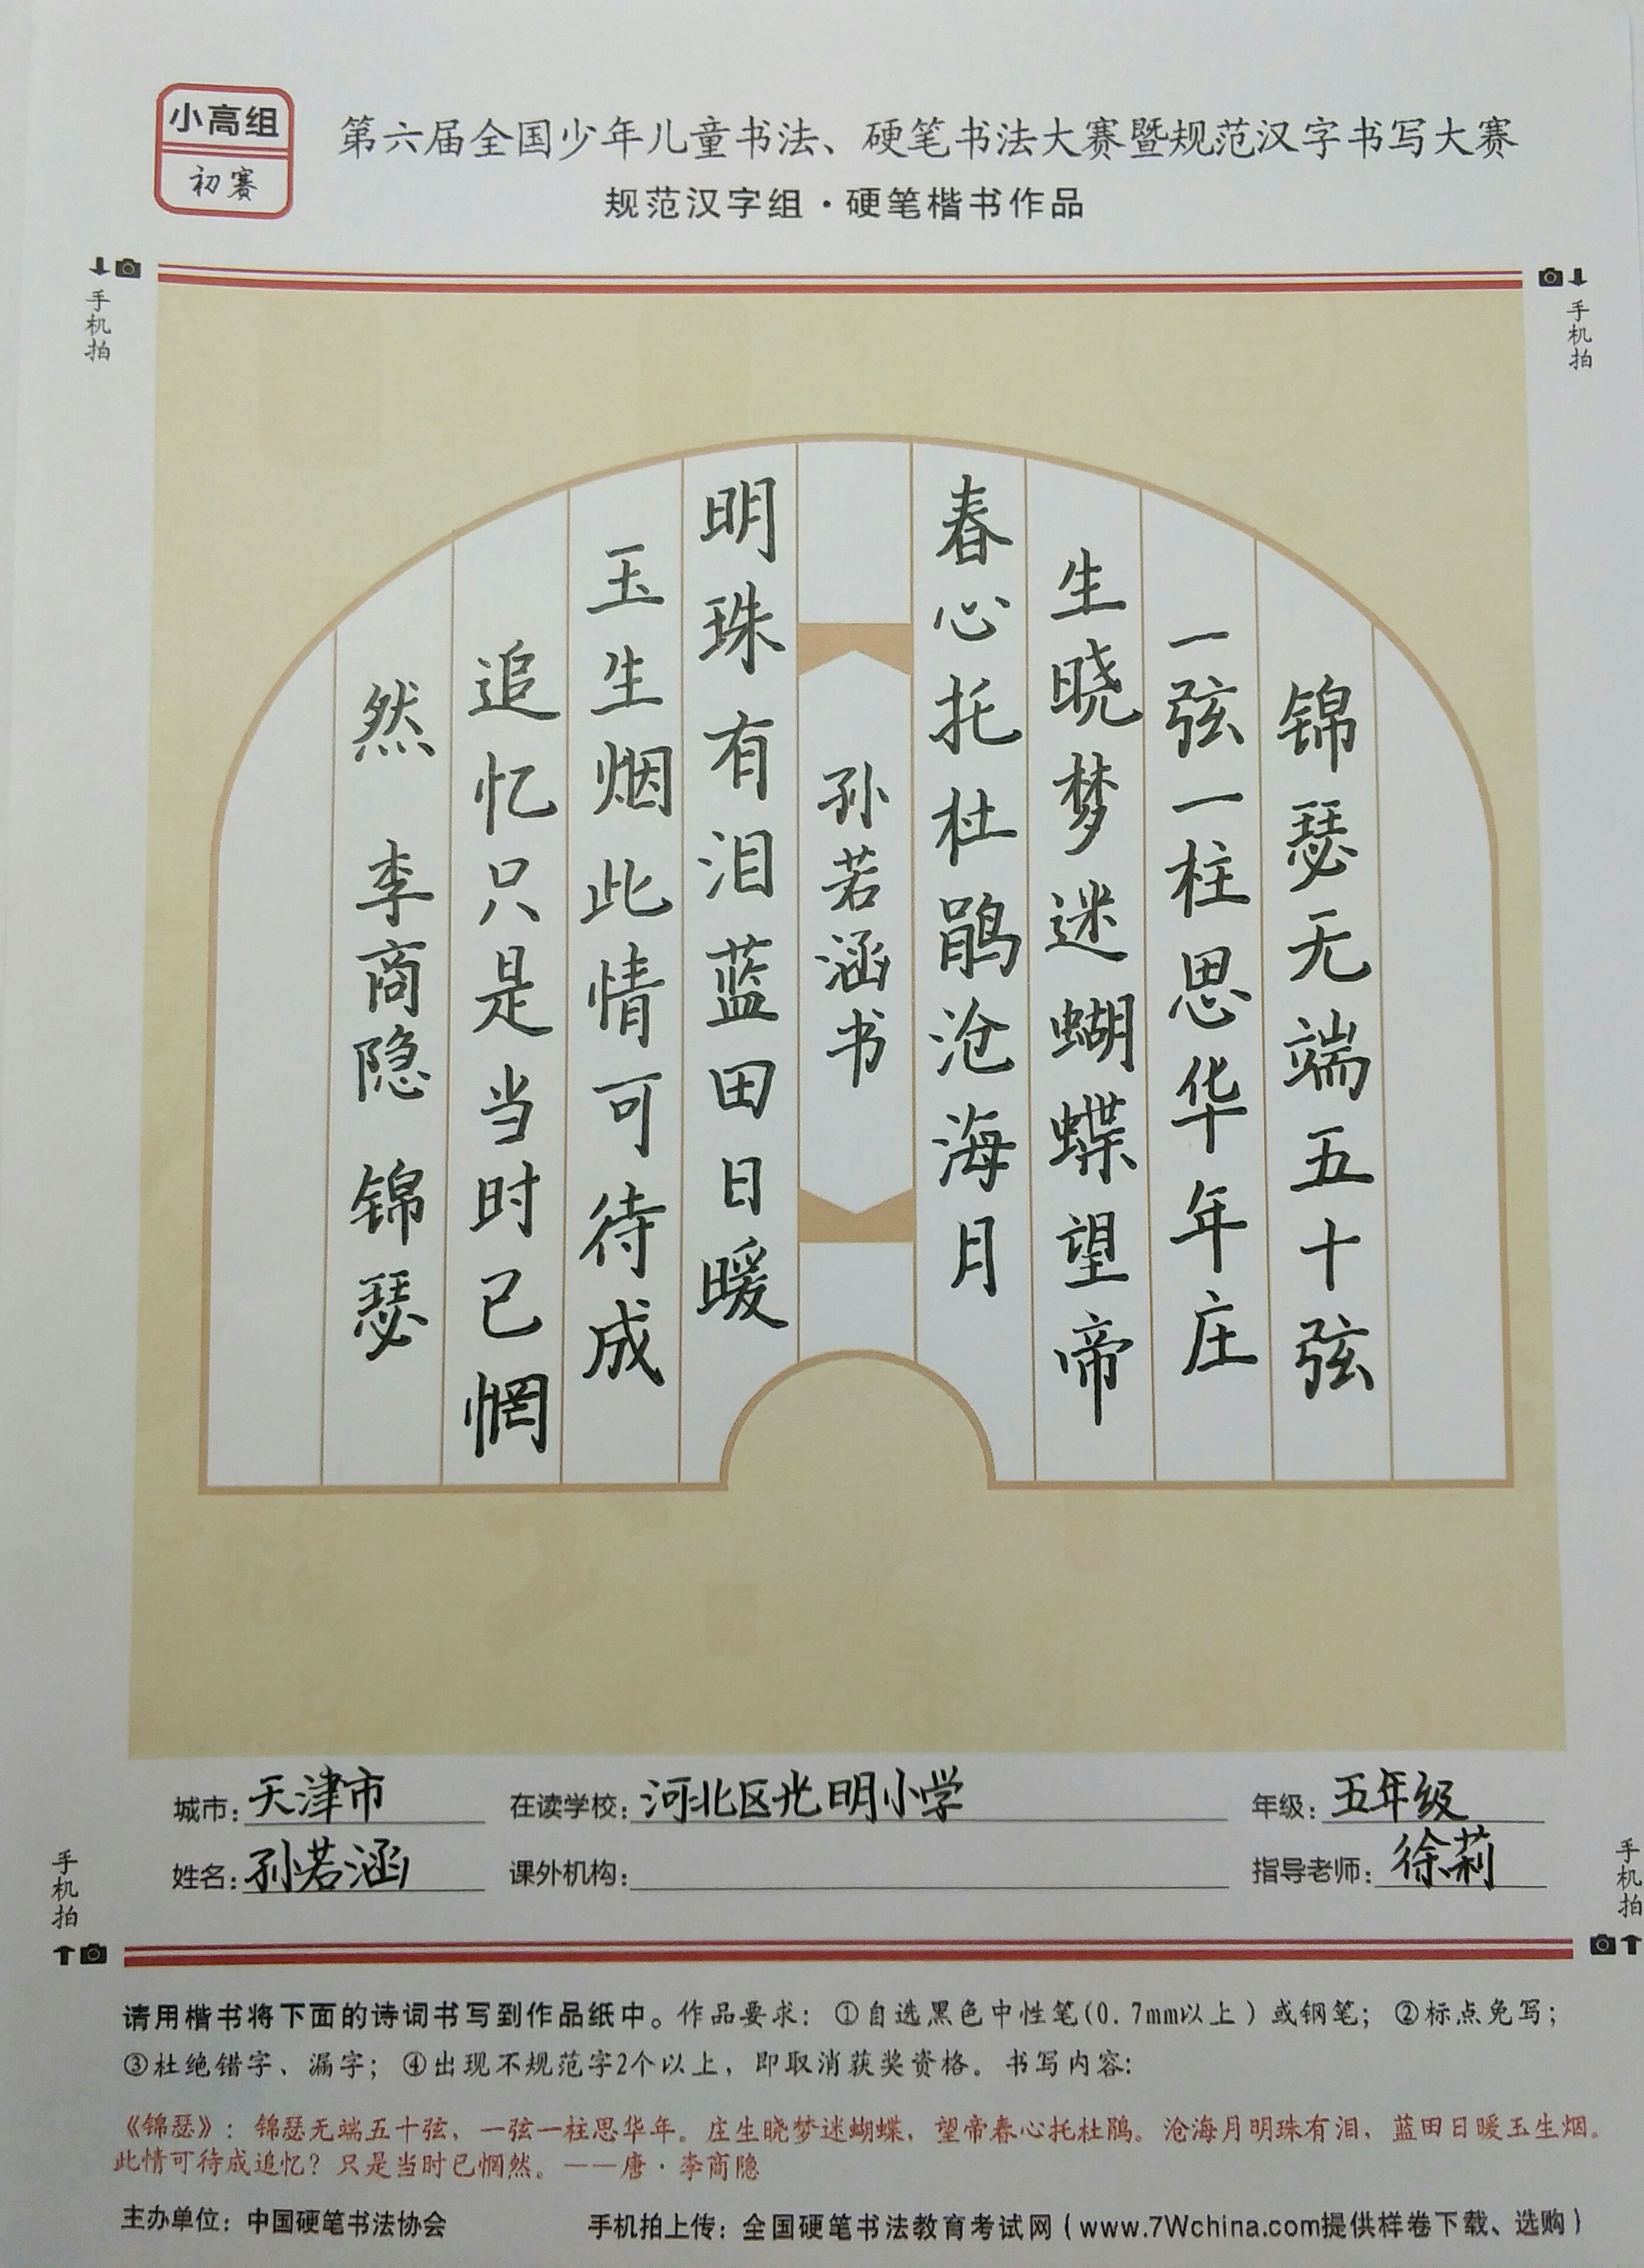 小高组
初赛
第六届全国少年儿童书法、硬笔书法大赛暨规范汉字书写大赛
规范汉字组·硬笔楷书作品
手机拍
手机拍
锦瑟无端五十弦
一弦一柱思华年庄
生晓梦迷蝴蝶望帝
春心托杜鹃沧海月
孙若涵书
明珠有泪蓝田日暖
玉生烟此情可待成
追忆只是当时已惘
然 李商隐 锦瑟
城市：天津市 在读学校：河北区光明小学 年级：五年级
姓名：孙若涵 课外机构： 指导老师：徐莉
手机拍
手机拍
请用楷书将下面的诗词书写到作品纸中。作品要求：①自选黑色中性笔(0.7mm以上)或钢笔；②标点免写；
③杜绝错字、漏字；④出现不规范字2个以上，即取消获奖资格。书写内容：
《锦瑟》：锦瑟无端五十弦，一弦一柱思华年。庄生晓梦迷蝴蝶，望帝春心托杜鹃。沧海月明珠有泪，蓝田日暖玉生烟。
此情可待成追忆？只是当时已惘然。——唐·李商隐
主办单位：中国硬笔书法协会 手机拍上传：全国硬笔书法教育考试网（www.7Wchina.com提供样卷下载、选购）